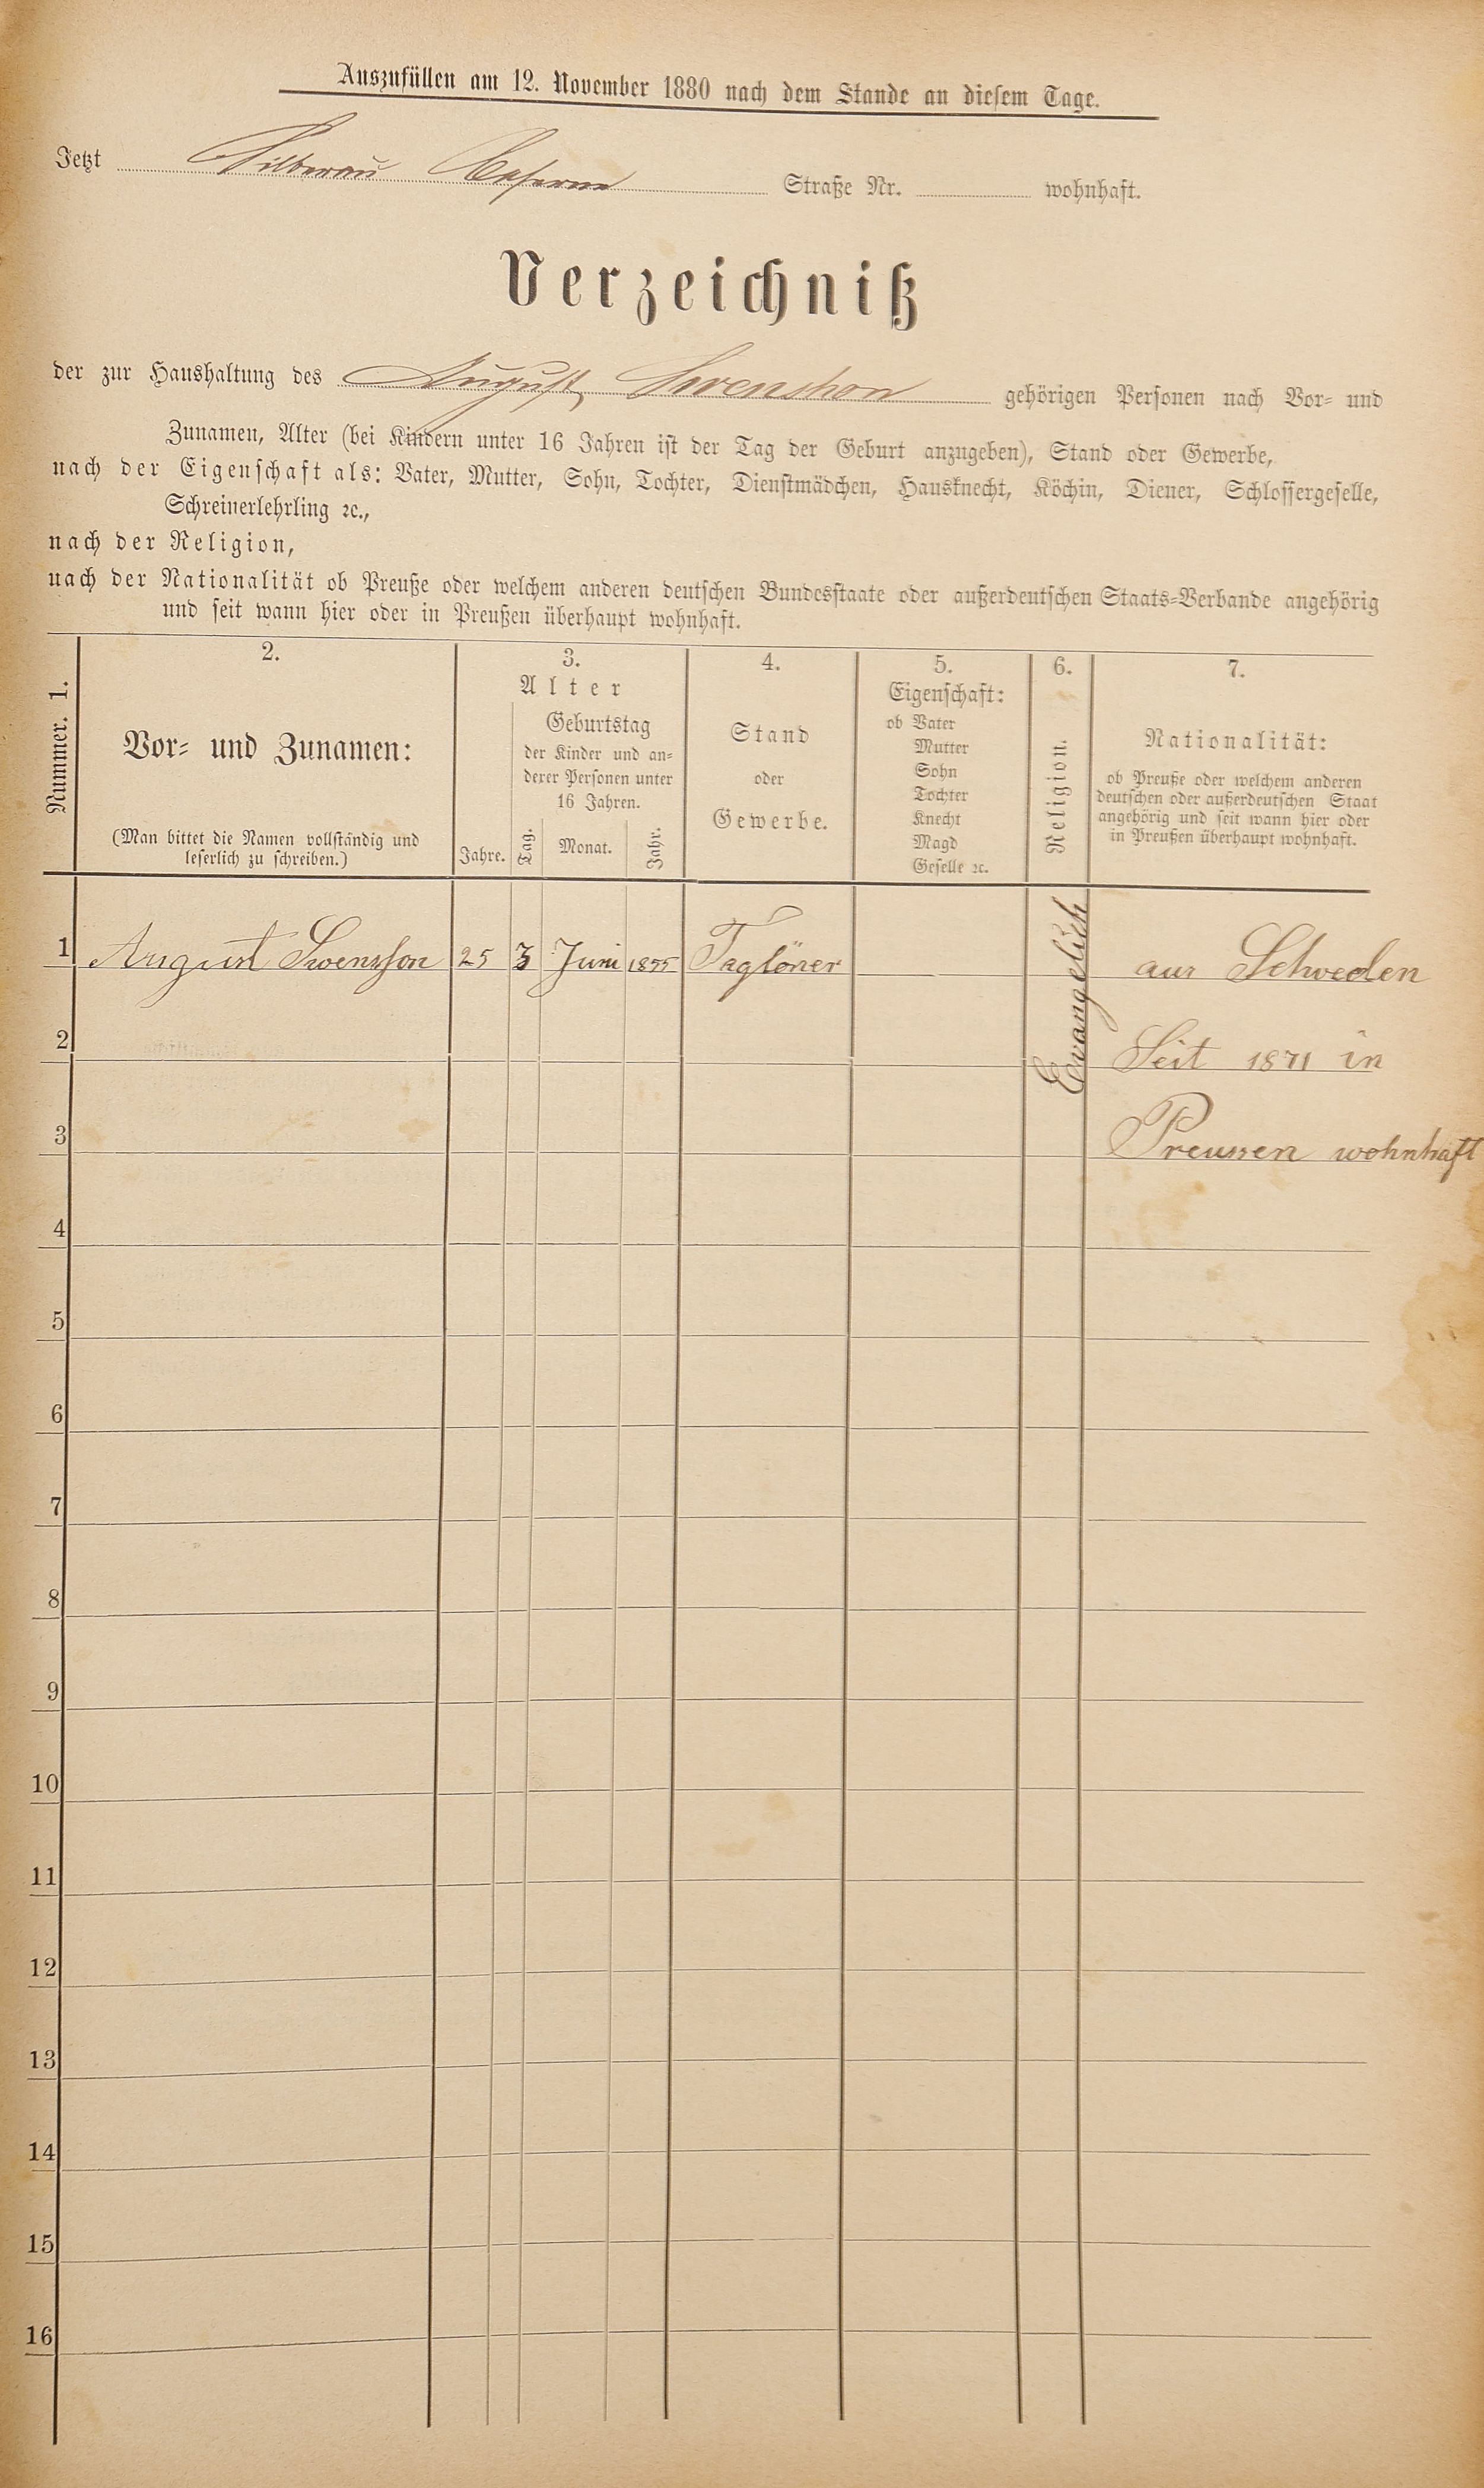 Auszufüllen am 12. November 1880 nach dem Stande an diesem Tage.
Jetzt Silberau Caserne Straße Nr. wohnhaft.
Verzeichniß
der zur Haushaltung des August Swenshon gehörigen Personen nach Vor- und
Zunamen, Alter (bei Kindern unter 16 Jahren ist der Tag der Geburt anzugeben), Stand oder Gewerbe,
nach der Eigenschaft als: Vater, Mutter, Sohn, Tochter, Dienstmädchen, Hausknecht, Köchin, Diener, Schlossergeselle,
Schreinerlehrling ꝛc.,
nach der Religion,
nach der Nationalität ob Preuße oder welchem anderen deutschen Bundesstaate oder außerdeutschen Staats-Verbande angehörig
und seit wann hier oder in Preußen überhaupt wohnhaft.
Nummer. 1.
2.
Vor- und Zunamen:
(Man bittet die Namen vollständig und
leserlich zu schreiben.)
3.
Alter
Jahre.
Geburtstag
der Kinder und an-
derer Personen unter
16 Jahren.
Tag. Monat. Jahr.
4.
Stand
oder
Gewerbe.
5.
Eigenschaft:
ob Vater
Mutter
Sohn
Tochter
Knecht
Magd
Geselle ꝛc.
6.
Religion.
7.
Nationalität:
ob Preuße oder welchem anderen
deutschen oder außerdeutschen Staat
angehörig und seit wann hier oder
in Preußen überhaupt wohnhaft.
1 August Swensson 25 3 Juni 1855 Taglöner Evangelich aus Schweden
2 Seit 1871 in
3 Preussen wohnhaft
4
5
6
7
8
9
10
11
12
13
14
15
16